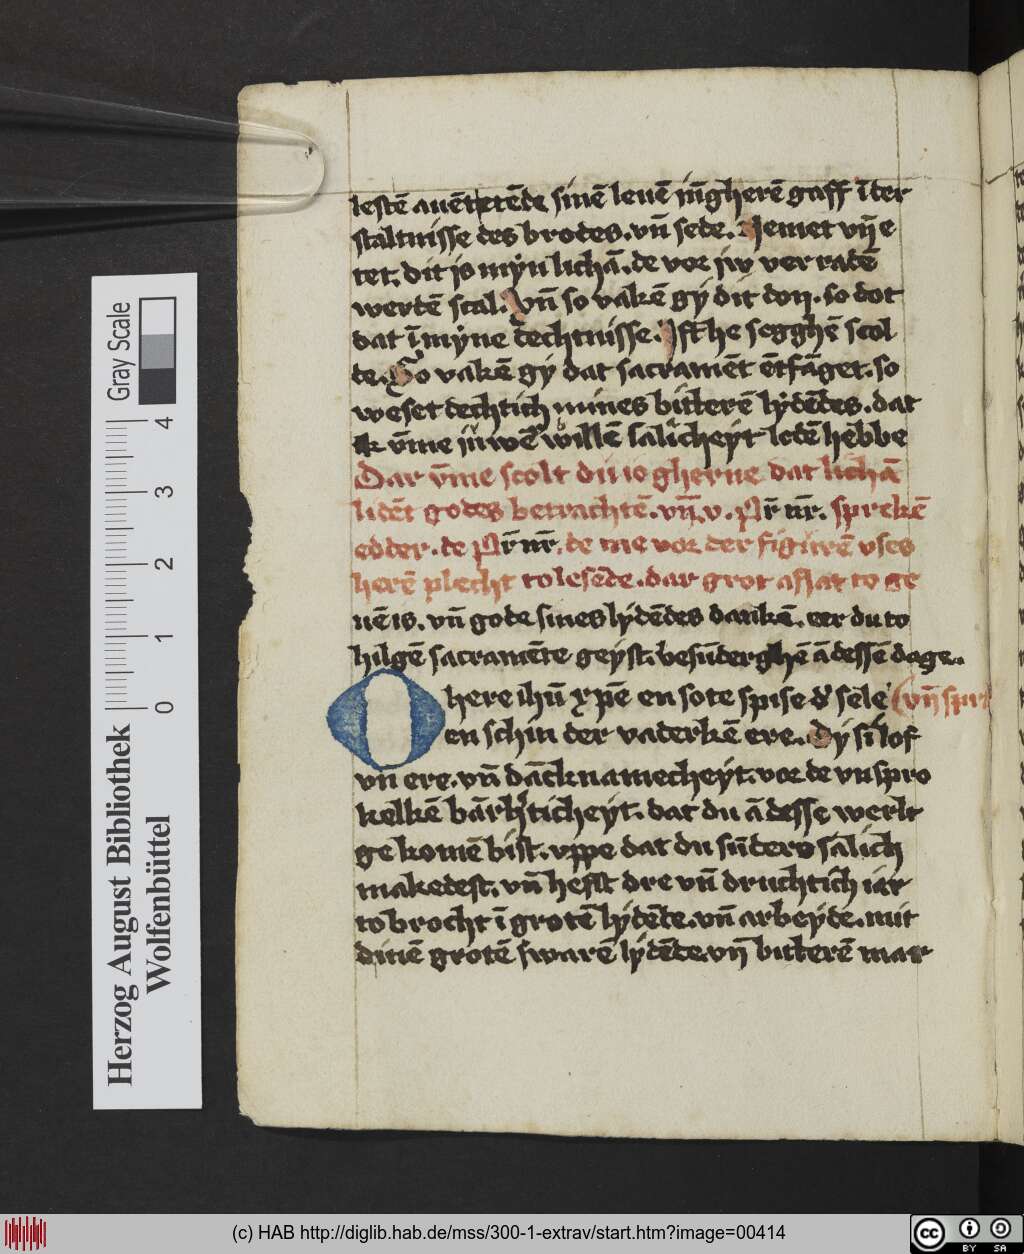 lestē auēt etēde sinē leuē iūgherē gaff ī der
staltnisse des brodes. vn̄ sede. Nemet vn̄ e
tet. dit is mẏn lichā. de vor iw verradē
werdē scal. Vn̄ so vakē gẏ dit don. so dot
dat ī mẏne dechtnisse. Ift he segghē scol
de. So vakē gẏ dat sacramēt ētfāget. so
weset dechtich mines bitterē lẏdēdes. dat
ik v̄me iuwē willē salicheẏt ledē hebbe
Dar v̄me scolt du io gherne dat lichā
lidēt godes betrachtē. vn̄ .v. Pr̄ nr̄. sprekē
edder. de Pr̄ nr̄. de me vor der figurē vses
herē plecht to lesēde. dar grot aflat to ge
uē is. vn̄ gode sines lẏdēdes dankē. eer du to
hilgē sacramēte geẏst. besūderghē ā dessē dage..
O here ihū xp̄e en sote spise d' sele (vn̄ spr
en schin der vaderkē ere. Dẏ si lof
vn̄ ere. vn̄ dācknamecheẏt. vor de vnspro
kelkē bārh'ticheẏt. dat du ā desse werlt
ge komē bist. vppe dat du sūders salich
makedest. vn̄ hefst dre vn̄ druchtich iar
to brocht ī grotē lẏdēde. vn̄ arbeẏde. mit
dinē grotē swarē lẏdēde. vn̄ bitterē mar
Herzog August Bibliothek
Wolfenbüttel
Gray Scale
0 1 2 3 4
(c) HAB http://diglib.hab.de/mss/300-1-extrav/start.htm?image=00414
cc BY SA